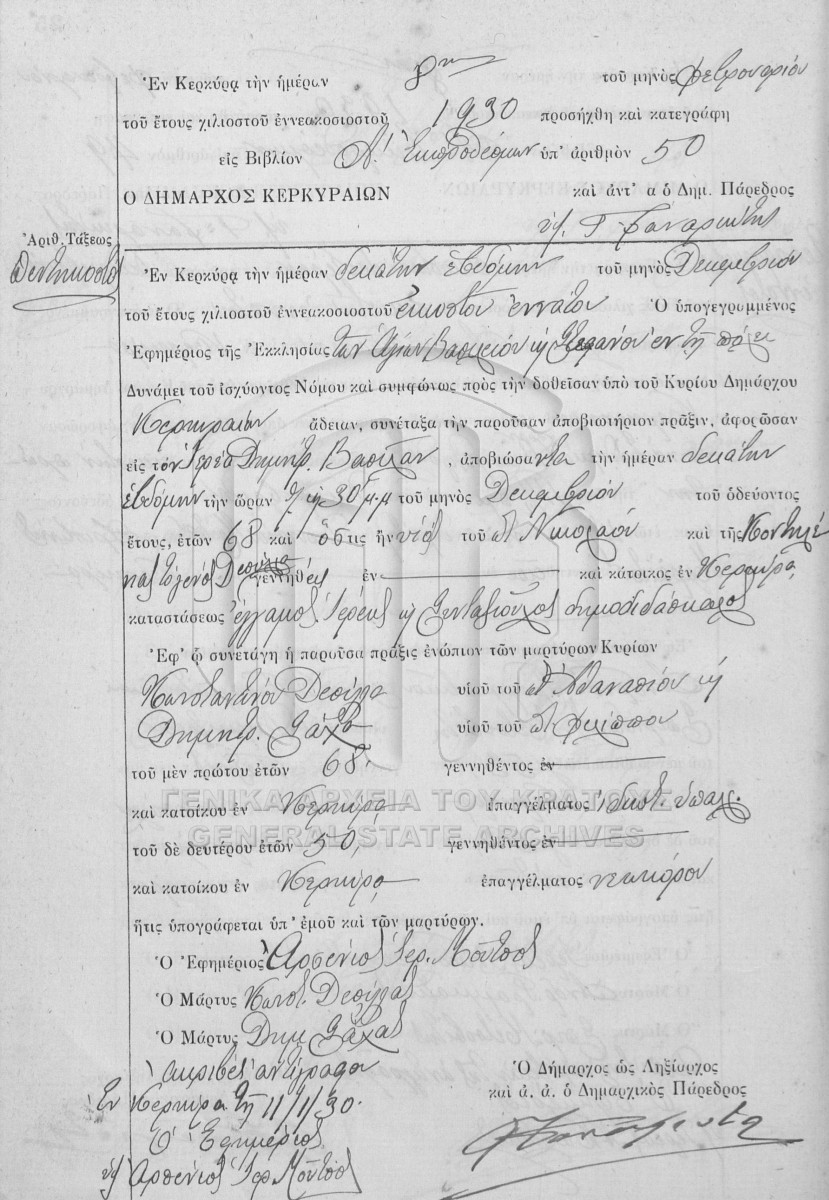 Ἐν Κερκύρᾳ τὴν ἡμέραν 8ην τοῦ μηνὸς Φεβρουαρίου
τοῦ ἔτους χιλιοστοῦ ἐννεακοσιοστοῦ 1930 προσήχθη καὶ κατεγράφη
εἰς Βιβλίον Α' Ἐκπροθέσμων ὑπ' ἀριθμὸν 50
Ο ΔΗΜΑΡΧΟΣ ΚΕΡΚΥΡΑΙΩΝ καὶ ἀντ' α ὁ Δημ. Πάρεδρος
Ἀριθ. Τάξεως
Πεντηκοστὸς
Ἐν Κερκύρᾳ τὴν ἡμέραν δεκάτην ἑβδόμην τοῦ μηνὸς Δεκεμβρίου
τοῦ ἔτους χιλιοστοῦ ἐννεακοσιοστοῦ εἰκοστοῦ ἐννάτου Ὁ ὑπογεγραμμένος
Ἐφημέριος τῆς Ἐκκλησίας τῶν Ἁγίων Βασιλείου κ Στεφάνου ἐν τῇ πόλει
Δυνάμει τοῦ ἰσχύοντος Νόμου καὶ συμφώνως πρὸς τὴν δοθεῖσαν ὑπὸ τοῦ Κυρίου Δημάρχου
Κερκυραίων ἄδειαν, συνέταξα τὴν παροῦσαν ἀποβιωτήριον πρᾶξιν, ἀφορῶσαν
εἰς τὸν Ἱερέα Δημήτρ. Βασιλᾶν, ἀποβιώσαντα τὴν ἡμέραν δεκάτην
ἑβδόμην τὴν ὥραν κ 30 μ.μ τοῦ μηνὸς Δεκεμβρίου τοῦ ὁδεύοντος
ἔτους, ἐτῶν 68 καὶ ὅστις ἦν υἱὸς τοῦ Νικολάου καὶ τῆς
τὸ γένος Δεσύλλα γεννηθεὶς ἐν καὶ κάτοικος ἐν Κερκύρᾳ,
καταστάσεως ἔγγαμος Ἱερεὺς κ Συνταξιοῦχος δημοδιδάσκαλος
Ἐφ' ᾧ συνετάγη ἡ παροῦσα πρᾶξις ἐνώπιον τῶν μαρτύρων Κυρίων
Κωνσταντίνου Δεσύλλα υἱοῦ τοῦ Ἀθανασίου κ
Δημητρ. Σάχα υἱοῦ τοῦ Φιλίππου
τοῦ μὲν πρώτου ἐτῶν 68. γεννηθέντος ἐν
καὶ κατοίκου ἐν Κερκύρᾳ ἐπαγγέλματος ἰδιωτ. ὑπαλ.
ΓΕΝΙΚΑ ΑΡΧΕΙΑ ΤΟΥ ΚΡΑΤΟΥΣ
GENERAL STATE ARCHIVES
τοῦ δὲ δευτέρου ἐτῶν 50, γεννηθέντος ἐν
καὶ κατοίκου ἐν Κερκύρᾳ ἐπαγγέλματος νεωκόρου
ἥτις ὑπογράφεται ὑπ' ἐμοῦ καὶ τῶν μαρτύρων.
Ὁ Ἐφημέριος Ἀρσένιος Ἱερ. Μοῦτσος
Ὁ Μάρτυς Κωνστ. Δεσύλλας
Ὁ Μάρτυς Δημ Σάχας
Ἀκριβὲς ἀντίγραφον
Ὁ Δήμαρχος ὡς Ληξίαρχος
καὶ ἀ. ἀ. ὁ Δημαρχικὸς Πάρεδρος
Ἐν Κερκύρᾳ τῇ 11/1/30.
Ὁ Ἐφημέριος
Ἀρσένιος Ἱερ. Μοῦτσος